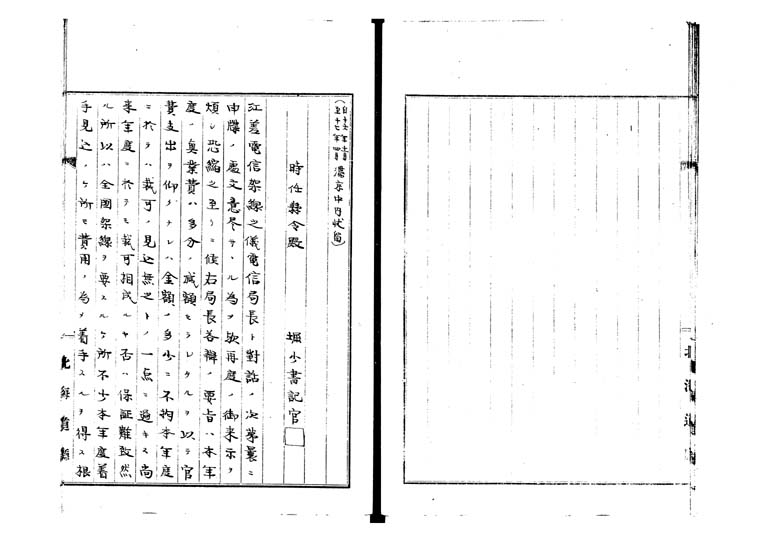 時任縣令殿
堀少書記官
江差電信架線之儀電信局長ト對話ノ次第曩ニ
申牒ノ處文意尽サヽル為メ欤再庭ノ御来示ヲ
煩シ恐縮之至リニ候右局長答辨ノ要旨ハ本年
度ノ興業費ハ多分ノ減額セラレタルヲ以テ官
費支出ヲ仰クナレハ金額ノ多少ニ不拘本年度
ニ於テハ裁可ノ見込無之トノ一点ニ過キス尚
来年度ニ於テモ裁可相成ルヤ否ハ保証難致然
ル所以ハ全國架線ヲ要スルケ所不少本年度着
手見込ノケ所モ費用ノ為メ着手スルヲ得ス根